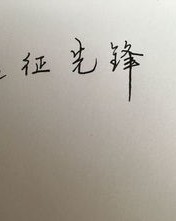 征先锋